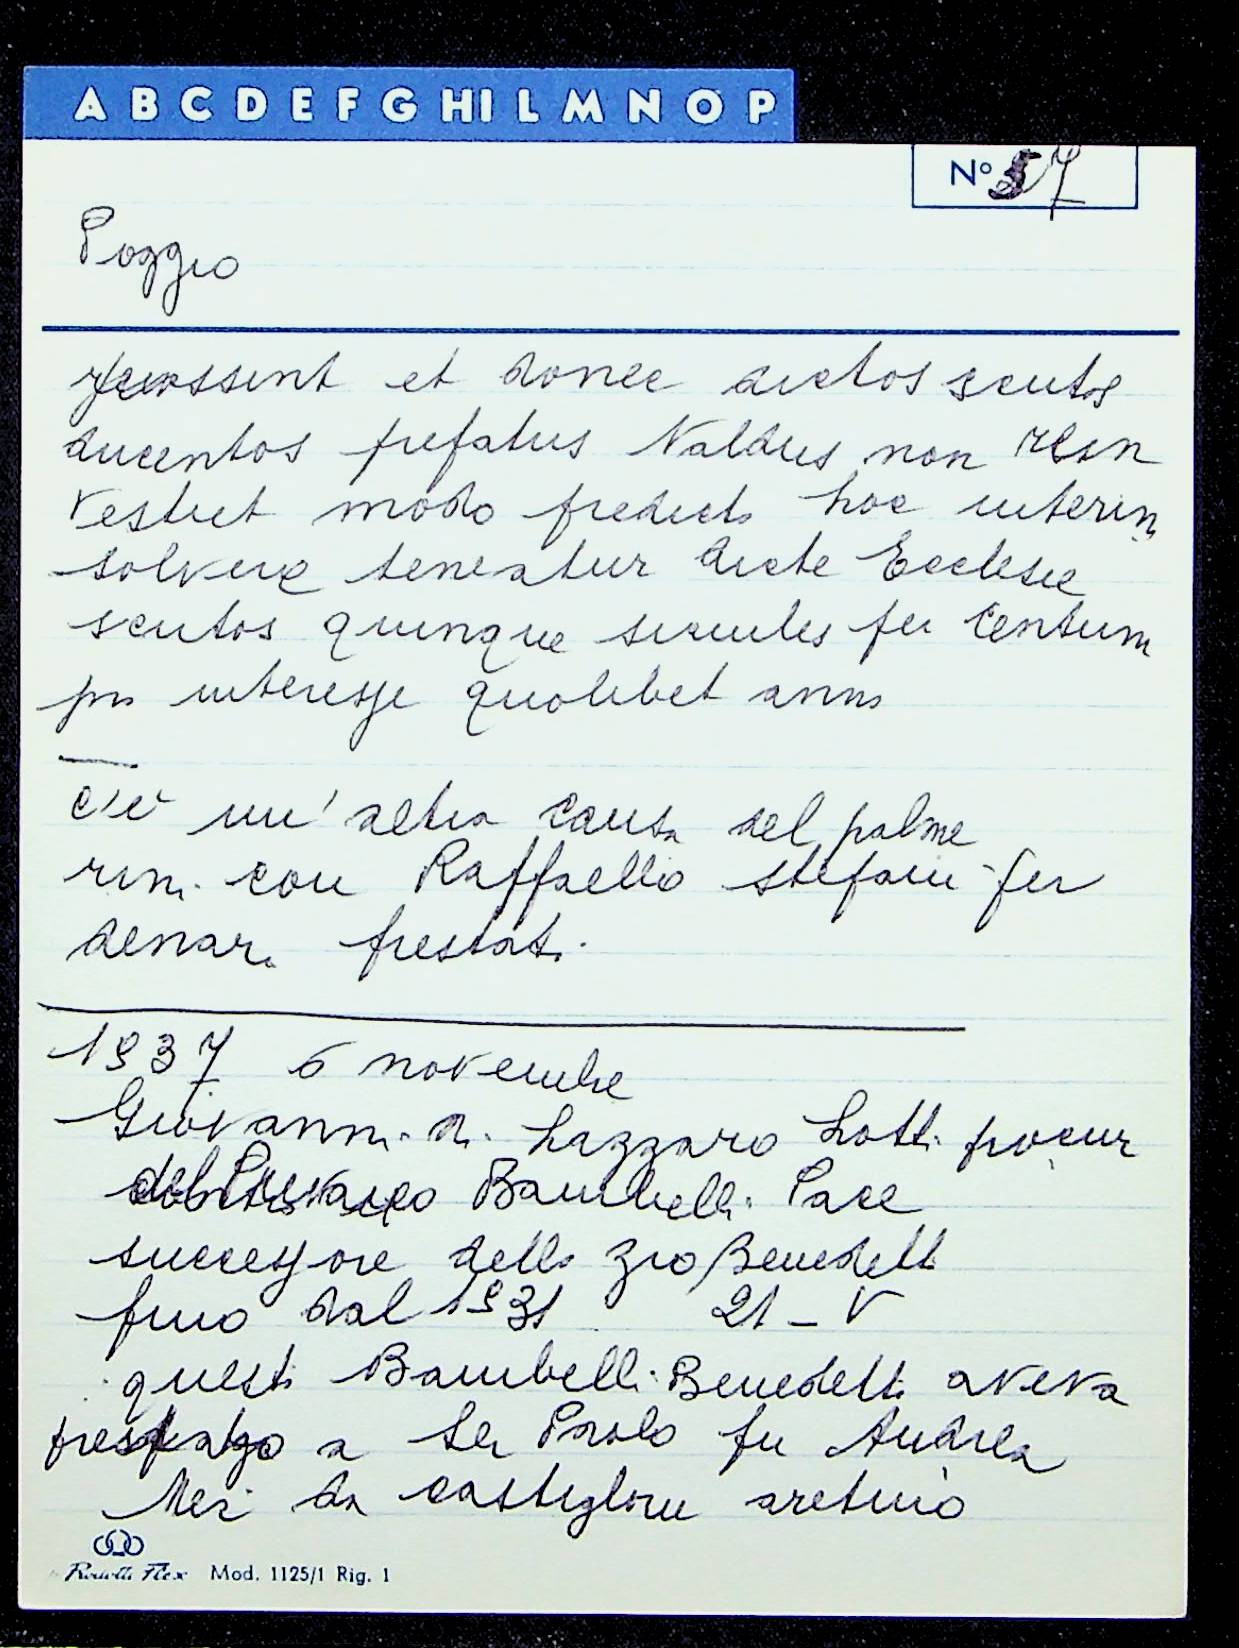 A B C D E F G HI L M N O P
N° 57
Poggio
et donec dictos scutos
ducentos prefatus Naldus non rein
vestiet modo predicto hoc interim
solvere teneatur dicte Ecclesie
scutos quinque singules per centum
pro interesse quolibet anno
c'è un' altra causa del palme
rini con Raffaello Stefani per
denari prestati.
1937 6 novembre
Giovanni di Lazzaro Lotti procur
Bambelli Pace
successore dello zio Benedetto
fino dal 1931 21 - V
questi Bambelli Benedetti aveva
a Ser Paolo fu Andrea
Nei da castiglione aretino
Mod. 1125/1 Rig. 1